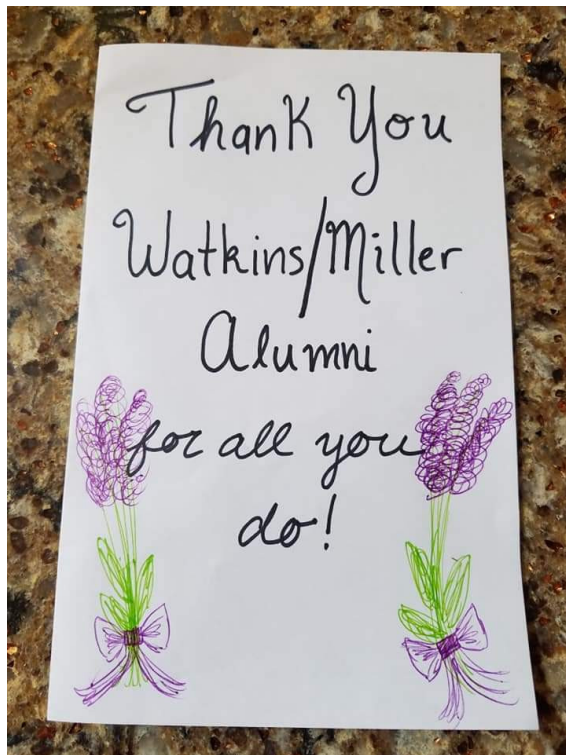 Thank You
Watkins/Miller
Alumni
for all you
do!